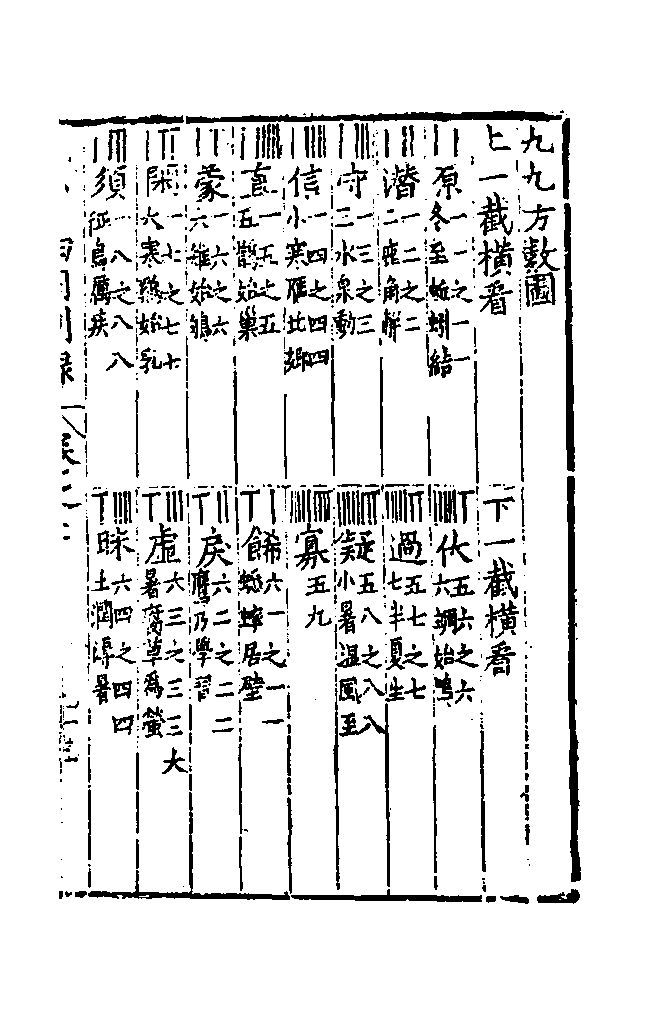 九九方數圖
上一截橫看
原
一一之一一
冬至蚯蚓結
潛
一二之二
二麋角觧
守
一三之三
二水泉動
信
一四之四四
小寒雁北鄉
直
一五之五
五鵲始巢
蒙
一六之六
六雉始鴝
閑
一七之七十
大寒鷄始乳
須
一八之八八
征鳥厲疾
下一截橫看
伏
五六之六
六蜩始鳴
過
五七之七
七半夏生
疑
五八之八八
小暑温風至
寡
五九
餙
六一之一一
蟋蟀居壁
戾
六二之二二
鷹乃學習
虛
六三之三三大
暑腐草爲螢
昧
六四之四四
土潤溽暑